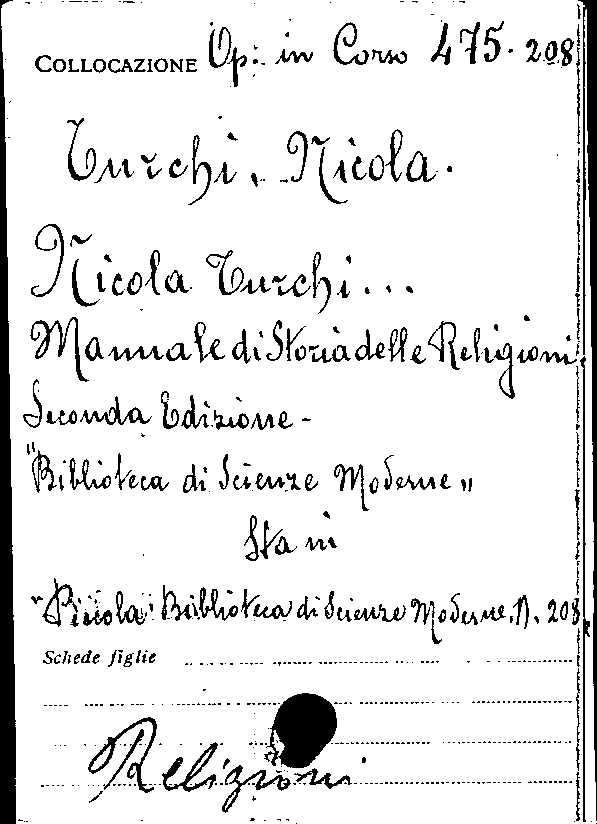 COLLOCAZIONE Op: in Corso 475.208
Turchi, Nicola.
Nicola Turchi...
Manuale di Storia delle Religioni.
Seconda Edizione -
"Biblioteca di Scienze Moderne"
Sta in
"Piccola" Biblioteca di Scienze Moderne, N. 208
Schede figlie
Religioni